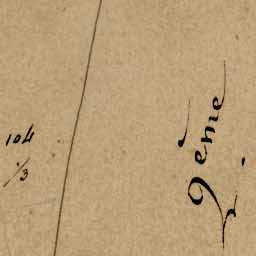 104
1/3
9eme